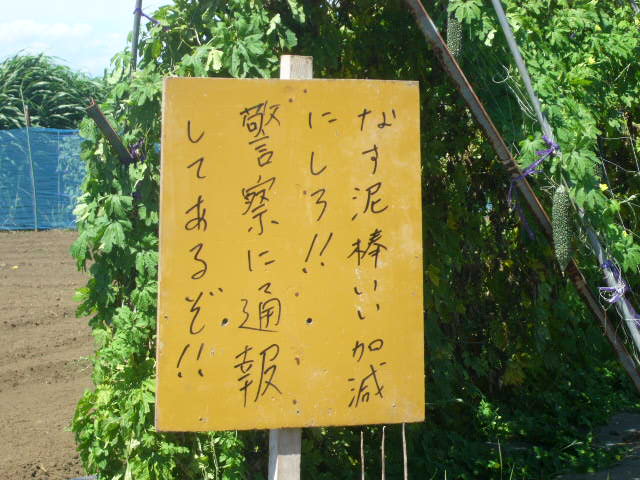 なす泥棒いい加減
にしろ!!
警察に通報
してあるぞ!!